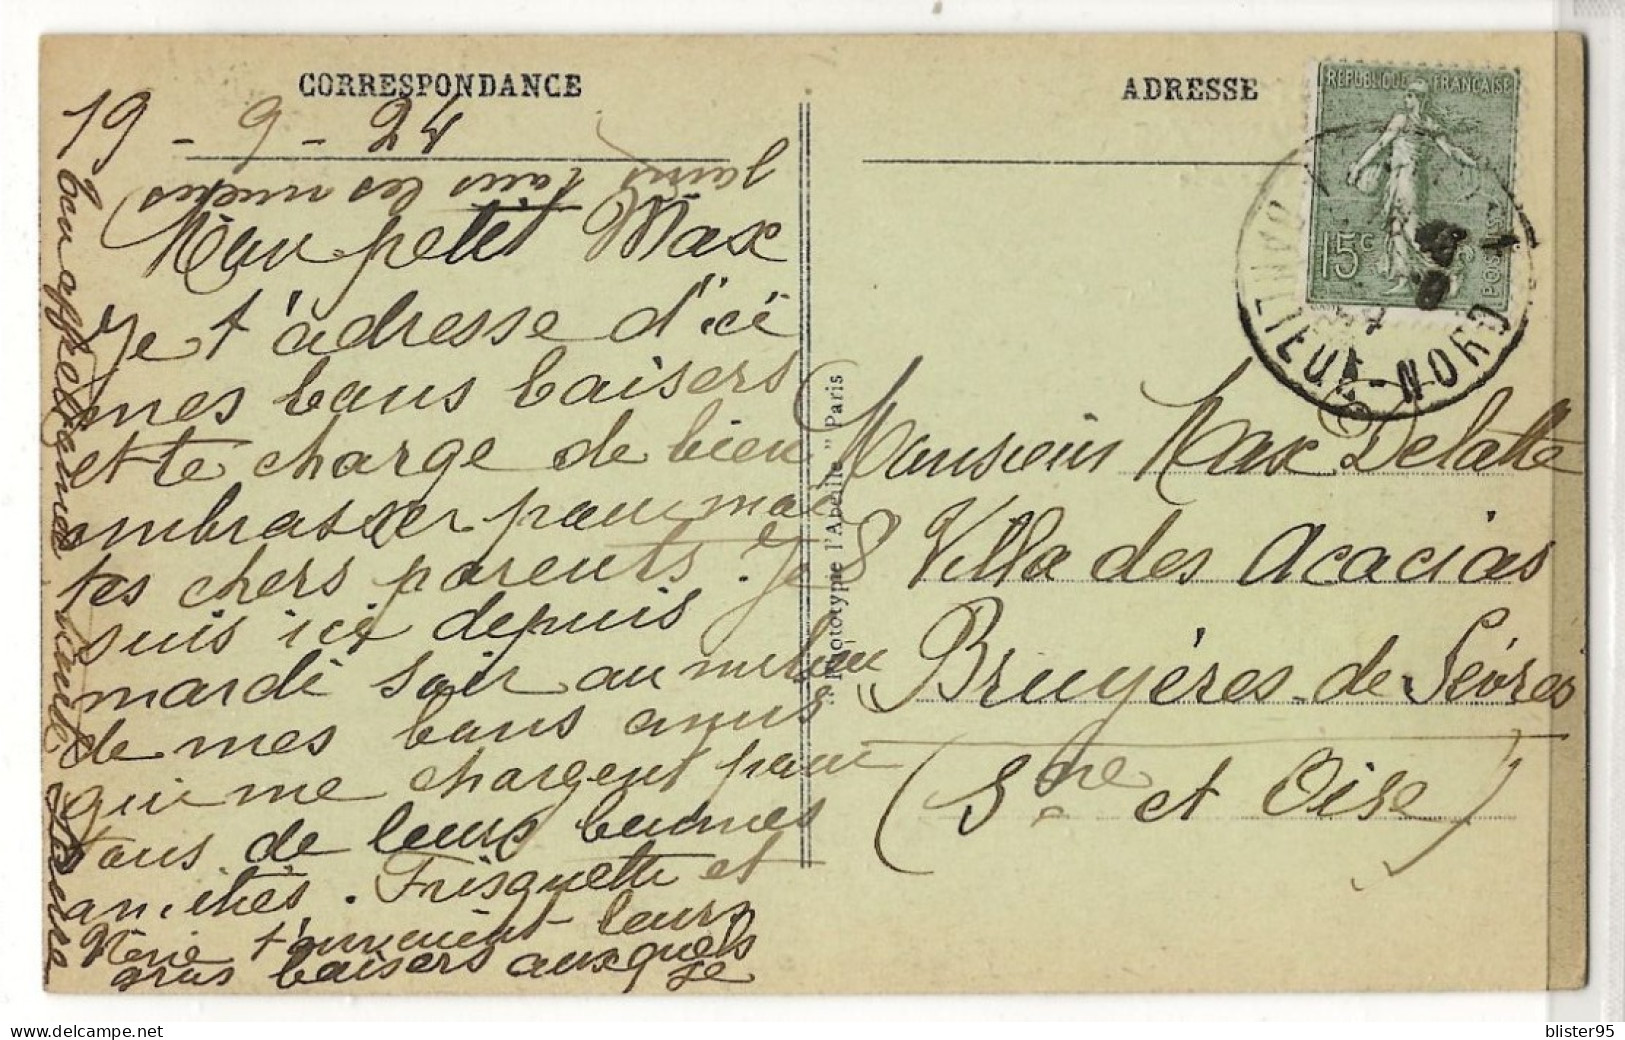 CORRESPONDANCE
19 - 9 - 24
Mon petit Max
Je t'adresse d'ici
mes bons baisers
et te charge de bien
embrasser pour moi
tes chers parents. Je
suis ici depuis
mardi soir au milieu
de mes bons amis
qui me chargent pour
tous de leurs bonnes
amitiés. Frisquette et
t'envoient leurs
gros baisers auxquels je
joins tous les miens
Ton affectionnée
ADRESSE
REPUBLIQUE FRANÇAISE
15c
POSTES
NORD
Phototypie l'Abeille " Paris
Monsieur Max Delatte
8 Villa des Acacias
Bruyères-de-Sèvres
(Sne et Oise)
blister95